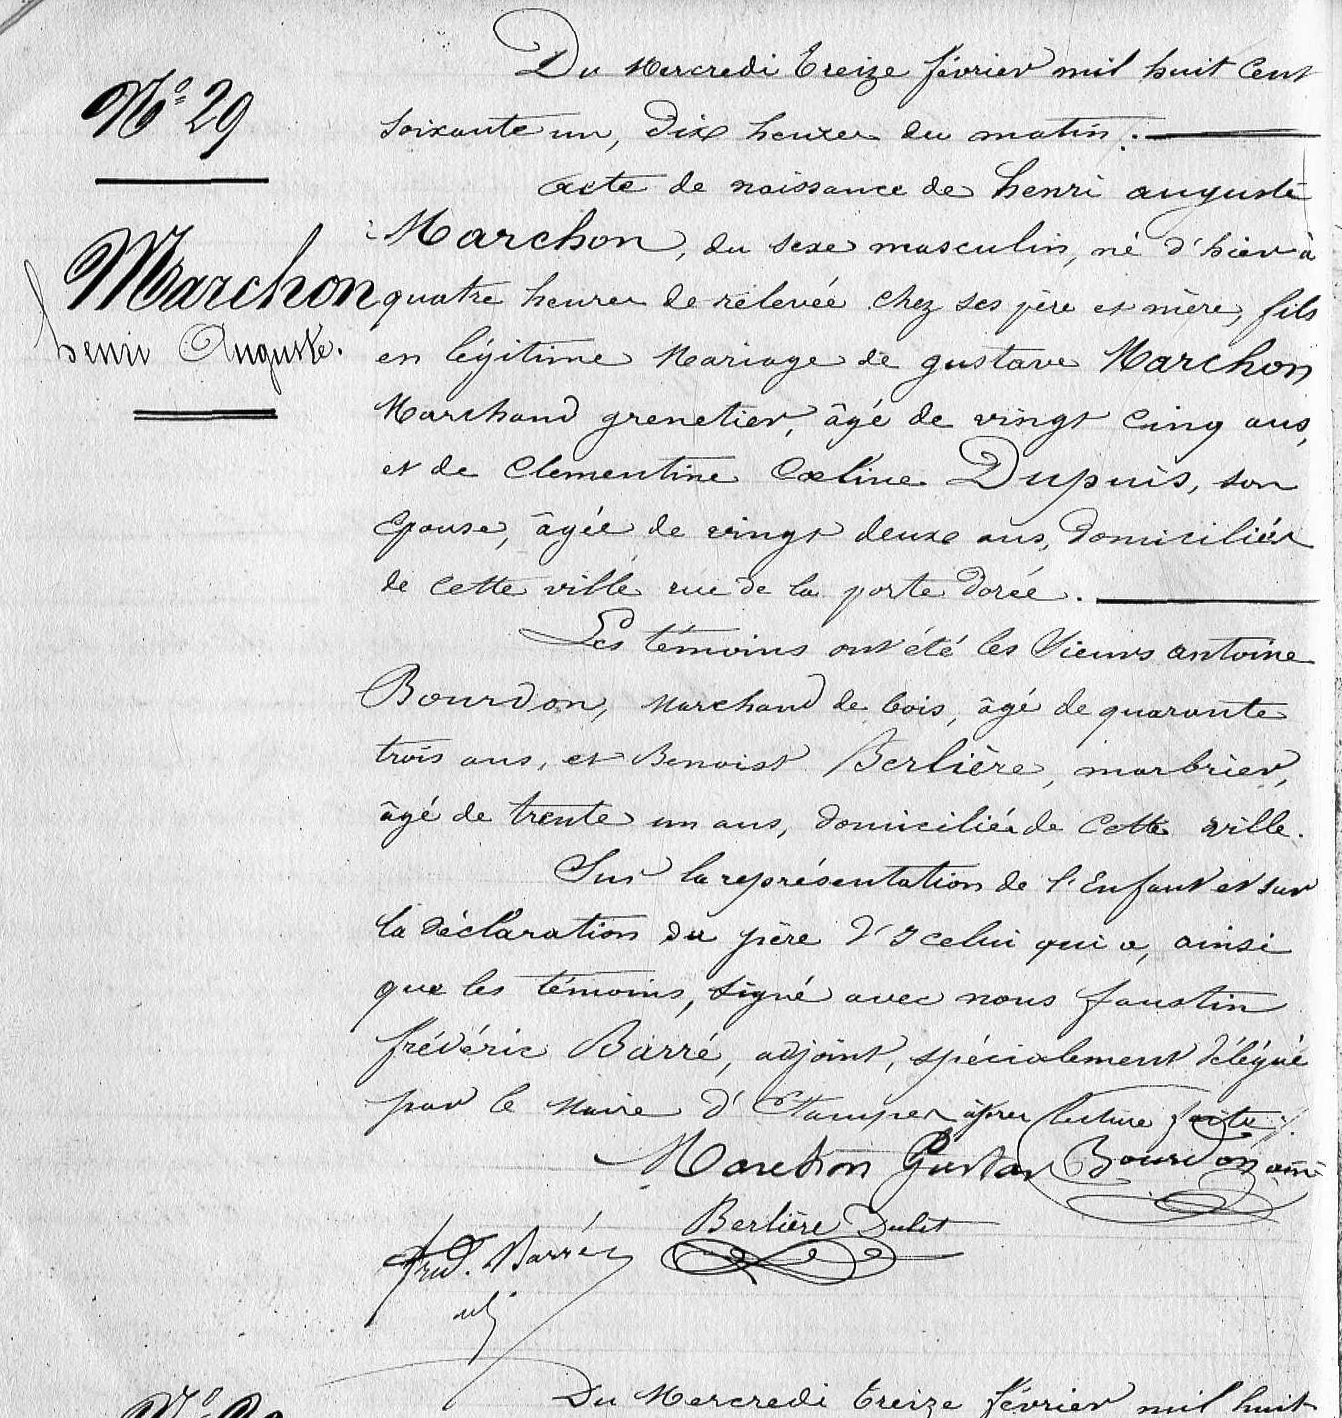 Du Mercredi treize février mil huit cent
soixante un, dix heures du matin.
N° 29
acte de naissance de henri auguste
Marchon, du sexe masculin, né d'hier à
Marchon
quatre heures de relevée chez ses père et mère, fils
henri Auguste.
en légitime Mariage de gustave Marchon
Marchand grenetier, âgé de vingt cinq ans,
et de Clementine Cœline Dupuis, son
Epouse, âgée de vingt deux ans, domiciliés
de cette ville rue de la porte dorée.
Les témoins ont été les Sieurs antoine
Bourdon, Marchand de bois, âgé de quarante
trois ans, et Benoist Berlière, marbrier,
âgé de trente un ans, domiciliés de cette ville.
Sur la représentation de l'Enfant et sur
la déclaration du père d'Icelui qui a, ainsi
que les témoins, signé avec nous faustin
frédéric Barré, adjoint, spécialement délégué
par le Maire d'Etampes après lecture faite.
Marchon Gustav Bourdon
Berlière
fred. Barré
adj
Du Mercredi treize février mil huit